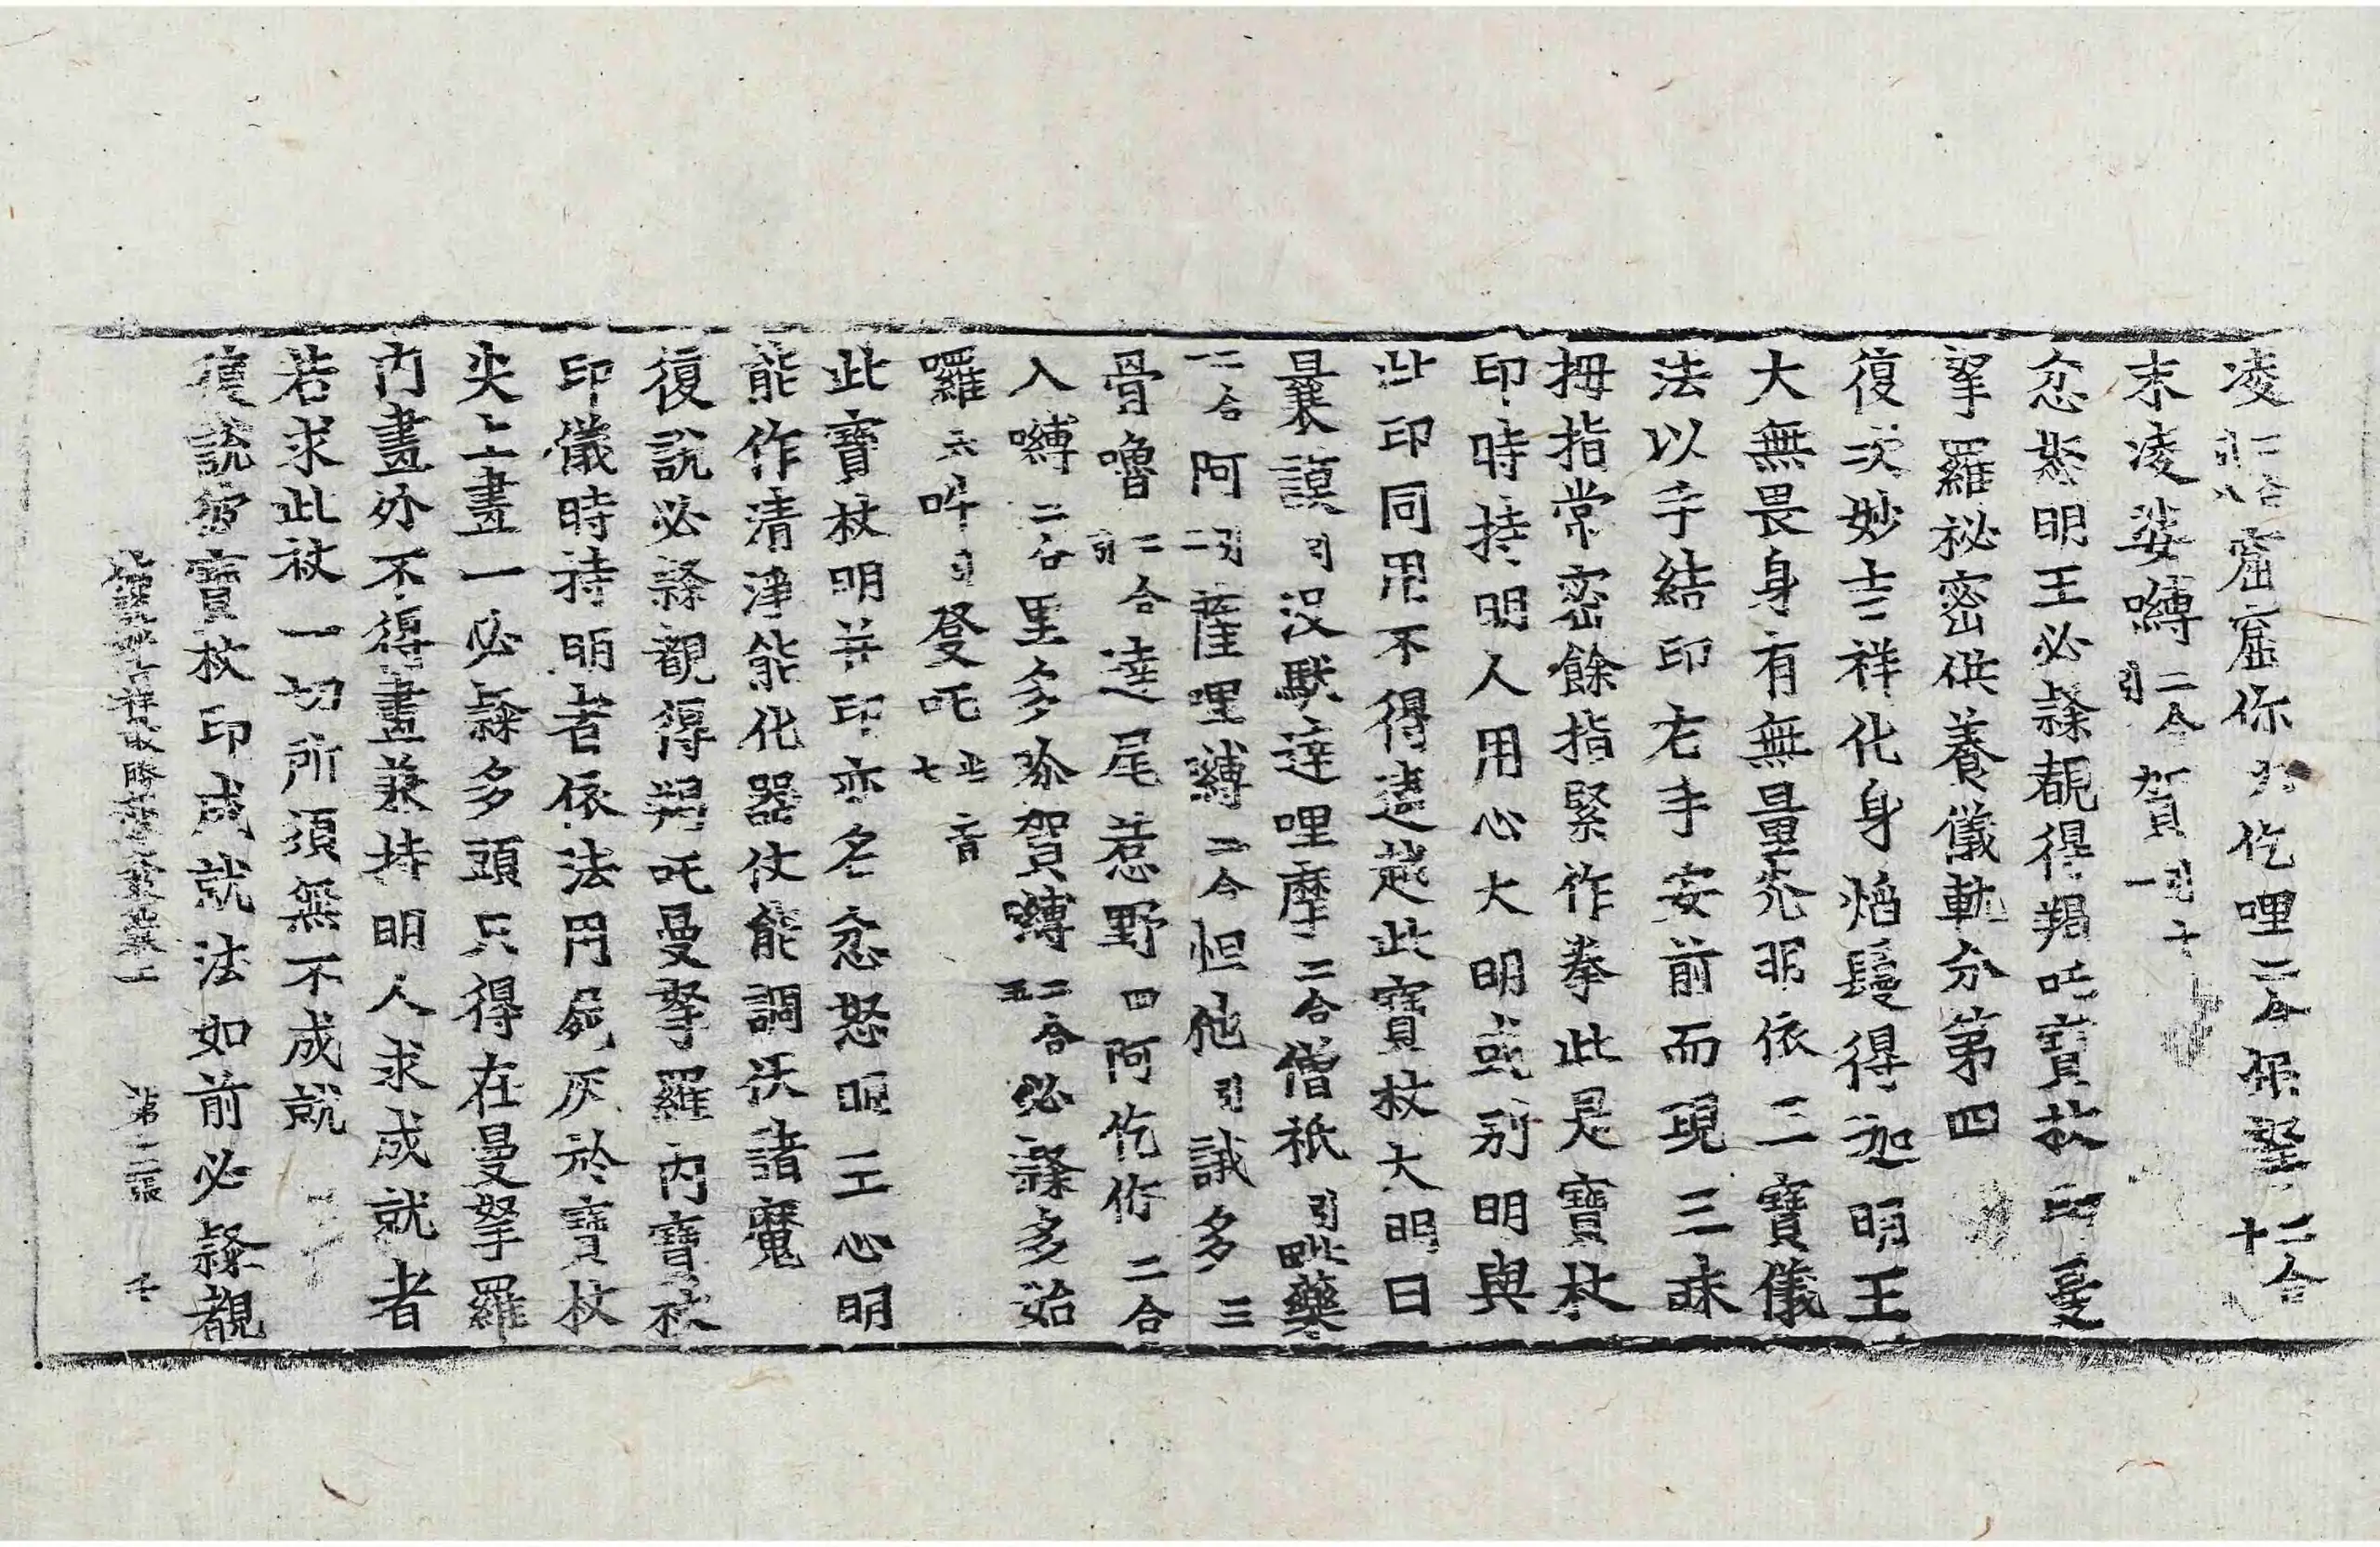 凌二合引八窟窟你九仡哩二合保拏二合十
末凌娑嚩二合引賀引十一
忿怒明王必隸覩得羯吒寶杖印曼
拏羅祕密供養儀軌分第四
復次妙吉祥化身焰鬘得迦明王
大無畏身有無量光明依三寶儀
法以手結印右手安前而現三昧
拇指常密餘指緊作拳此是寶杖
印時持明人用心大明或別明與
此印同用不得違越此寶杖大明曰
曩謨引沒馱達哩摩二合僧祇引毗藥
二合一阿引二薩哩嚩二合怛他引誐多三
骨嚕二合引達尾惹野四阿仡你二合
入嚩二合里多珍賀嚩二合五必隸多始
囉六吽引發吒半音七
此寶杖明并印亦名忿怒明王心明
能作清淨能化器仗能調伏諸魔
復說必隸覩得羯吒曼拏羅內寶杖
印儀時持明者依法用屍灰於寶杖
尖上畫一必隸多頭只得在曼拏羅
內畫外不得畫兼持明人求成就者
若求此杖一切所須無不成就
復說寶杖印成就法如前必隸覩
第二張